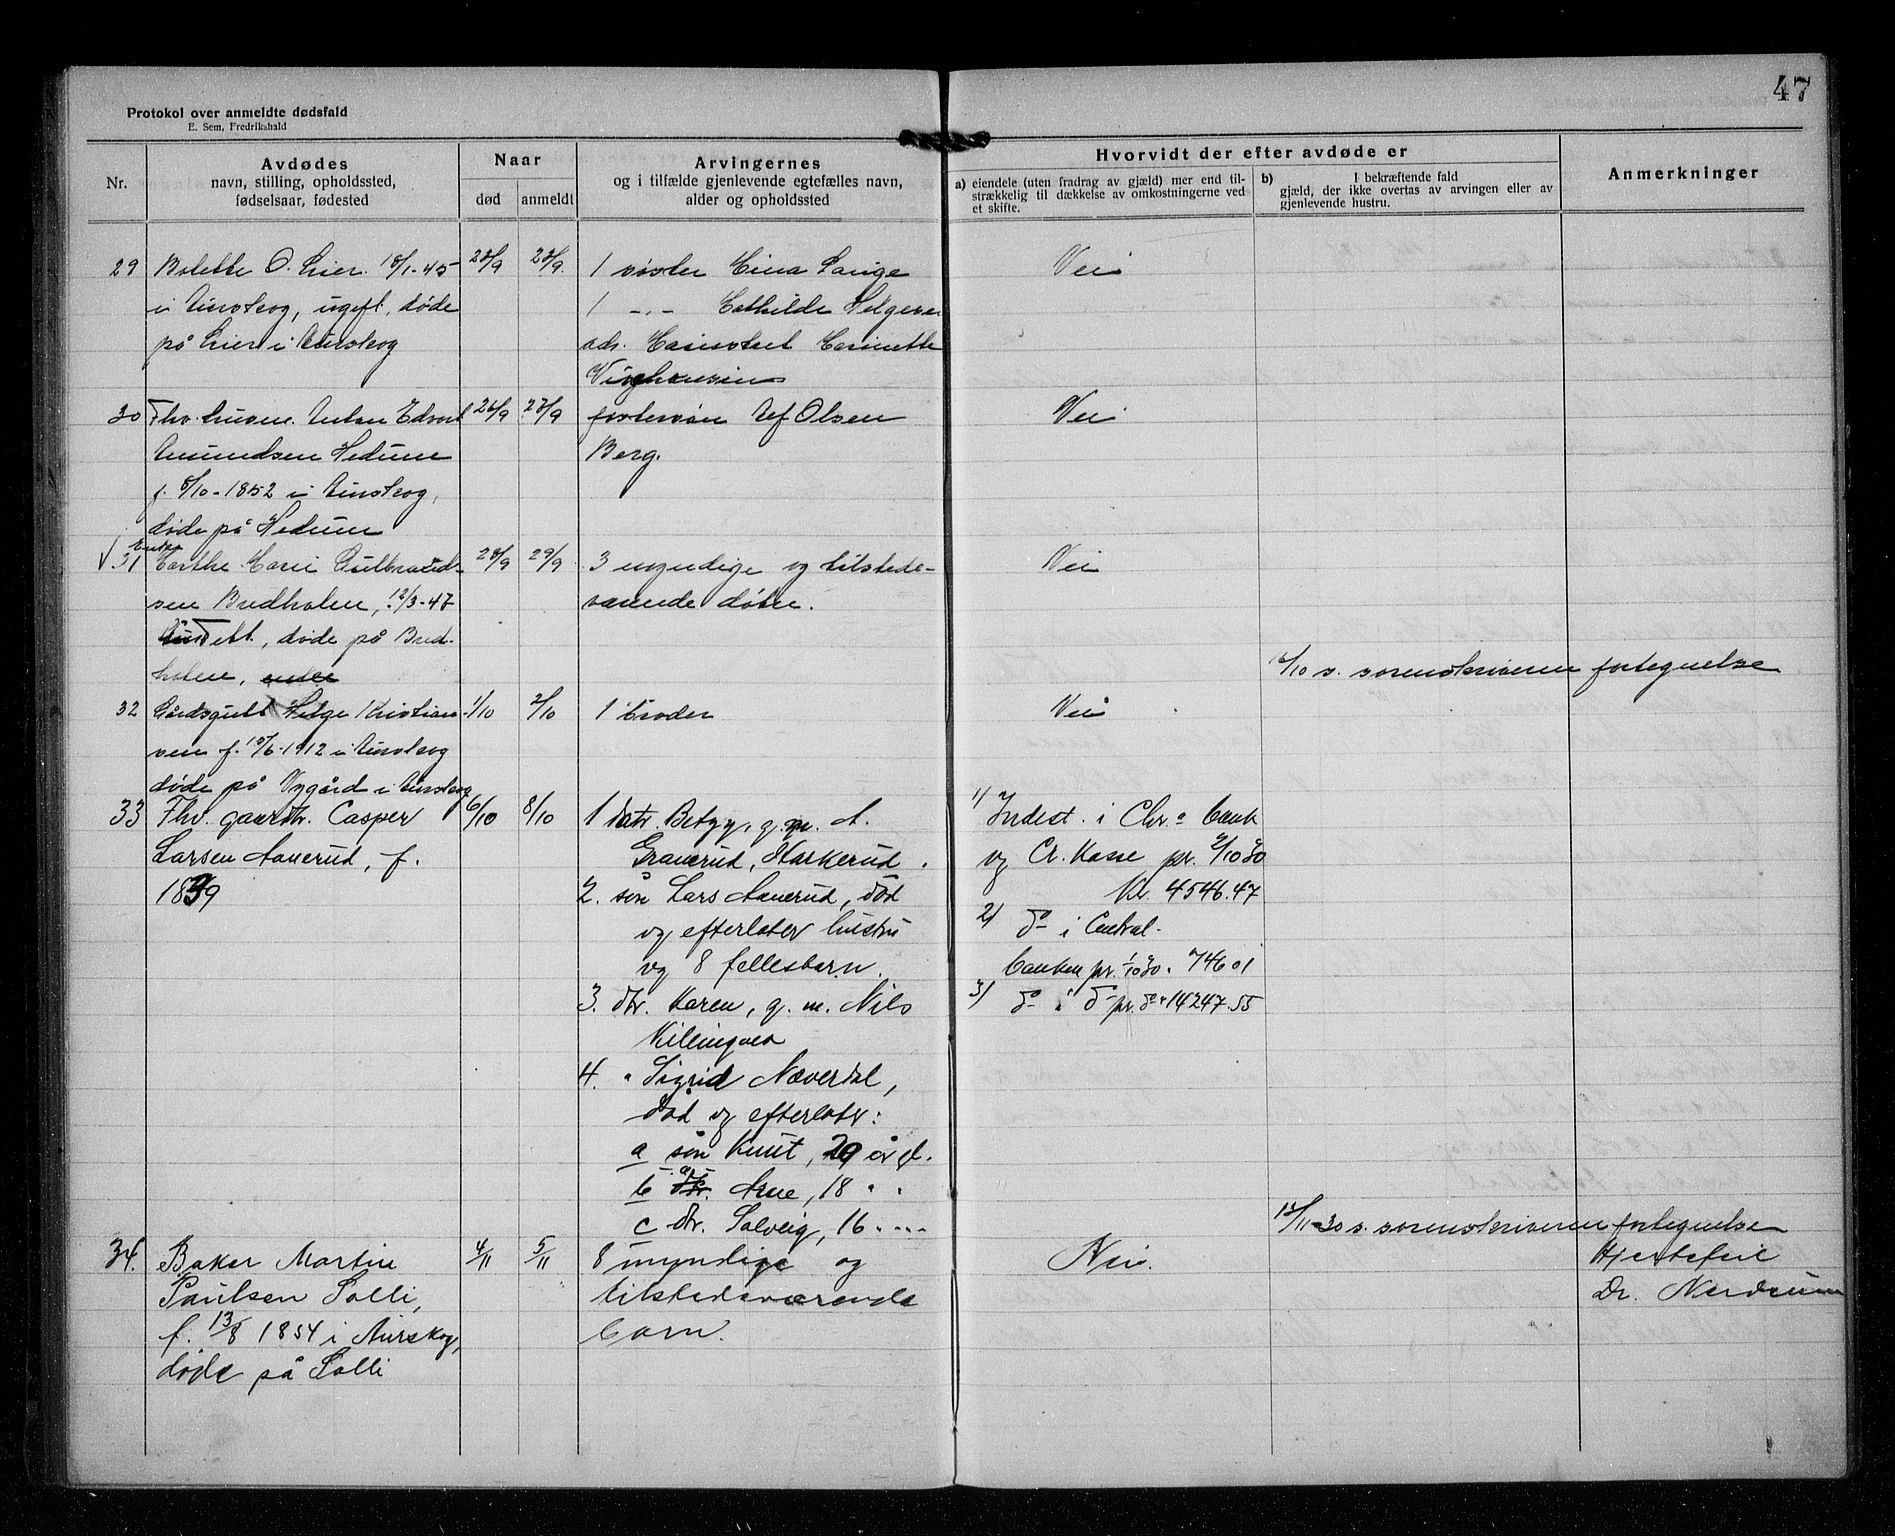 47
Protokol over anmeldte dødsfald
E. Sem, Fredrikshald
Nr.
Avdødes
navn, stilling, opholdssted,
fødselsaar, fødested
Naar
død
anmeldt
Arvingernes
og i tilfælde gjenlevende egtefælles navn,
alder og opholdssted
Hvorvidt der efter avdøde er
a) eiendele (uten fradrag av gjæld) mer end til-
strækkelig til dækkelse av omkostningerne ved
et skifte.
b) I bekræftende fald
gjæld, der ikke overtas av arvingen eller av
gjenlevende hustru.
Anmerkninger
29 Bolette O. Lier 18/1-45 28/9 28/9. 1 søster Lange Nei
i Aurskog, ugift, døde 1 -"- Mathilde
på Lier i Aurskog
30 Fhv. Anton Edvart 26/9 27/9 fostersøn Olsen Nei
Amundsen Hedum Berg.
f. 8/10-1852 i Aurskog,
døde på Hedum
Enke
√ 31 Marthe Marie Gulbrand- 28/9 29/9 3 myndige og tilstede- Nei
sen Bredholen, 12/3-47 værende døtre.
døde på Bred-
holen, enke
16/10 s. sorenskriveren fortegnelse
32 Gårdsgutt Helge Kristian- 1/10 2/10 1 broder Nei
sen f. 15/6-1912 i Aurskog
døde på Nygård i Aurskog
33 Fhv. gaardbr. Casper 6/10 8/10 1 datr. Betzy, g. m. A. 1) Indest. i Chr.a bank
Larsen Aanerud, f. Granerud, Harkerud. og Cr. Kasse pr. 2/10 30
1839 2. søn Lars Aanerud, død Kr. 4546.47
og efterlater hustru 2) do i Central-
og 8 fellesbarn. banken pr. 1/10 30 " 746 01
3. dtr. Karen, g. m. Nils 3) do i do pr. do " 14247.55
Killingmo
4. " Sigrid Næverdal,
død og efterlater:
a søn Knut, 20 år gl.
b dtr. Arne, 18 " "
c dtr. Solveig, 16 " " "
12/11-30 s. sorenskriveren fortegnelse
34. Baker Martin 4/11 5/11 8 myndige og Nei. Hjertefeil
Paulsen Solli, tilstedeværende Dr. Nerdrum
f. 13/8 1854 i Aurskog, barn.
døde på Solli